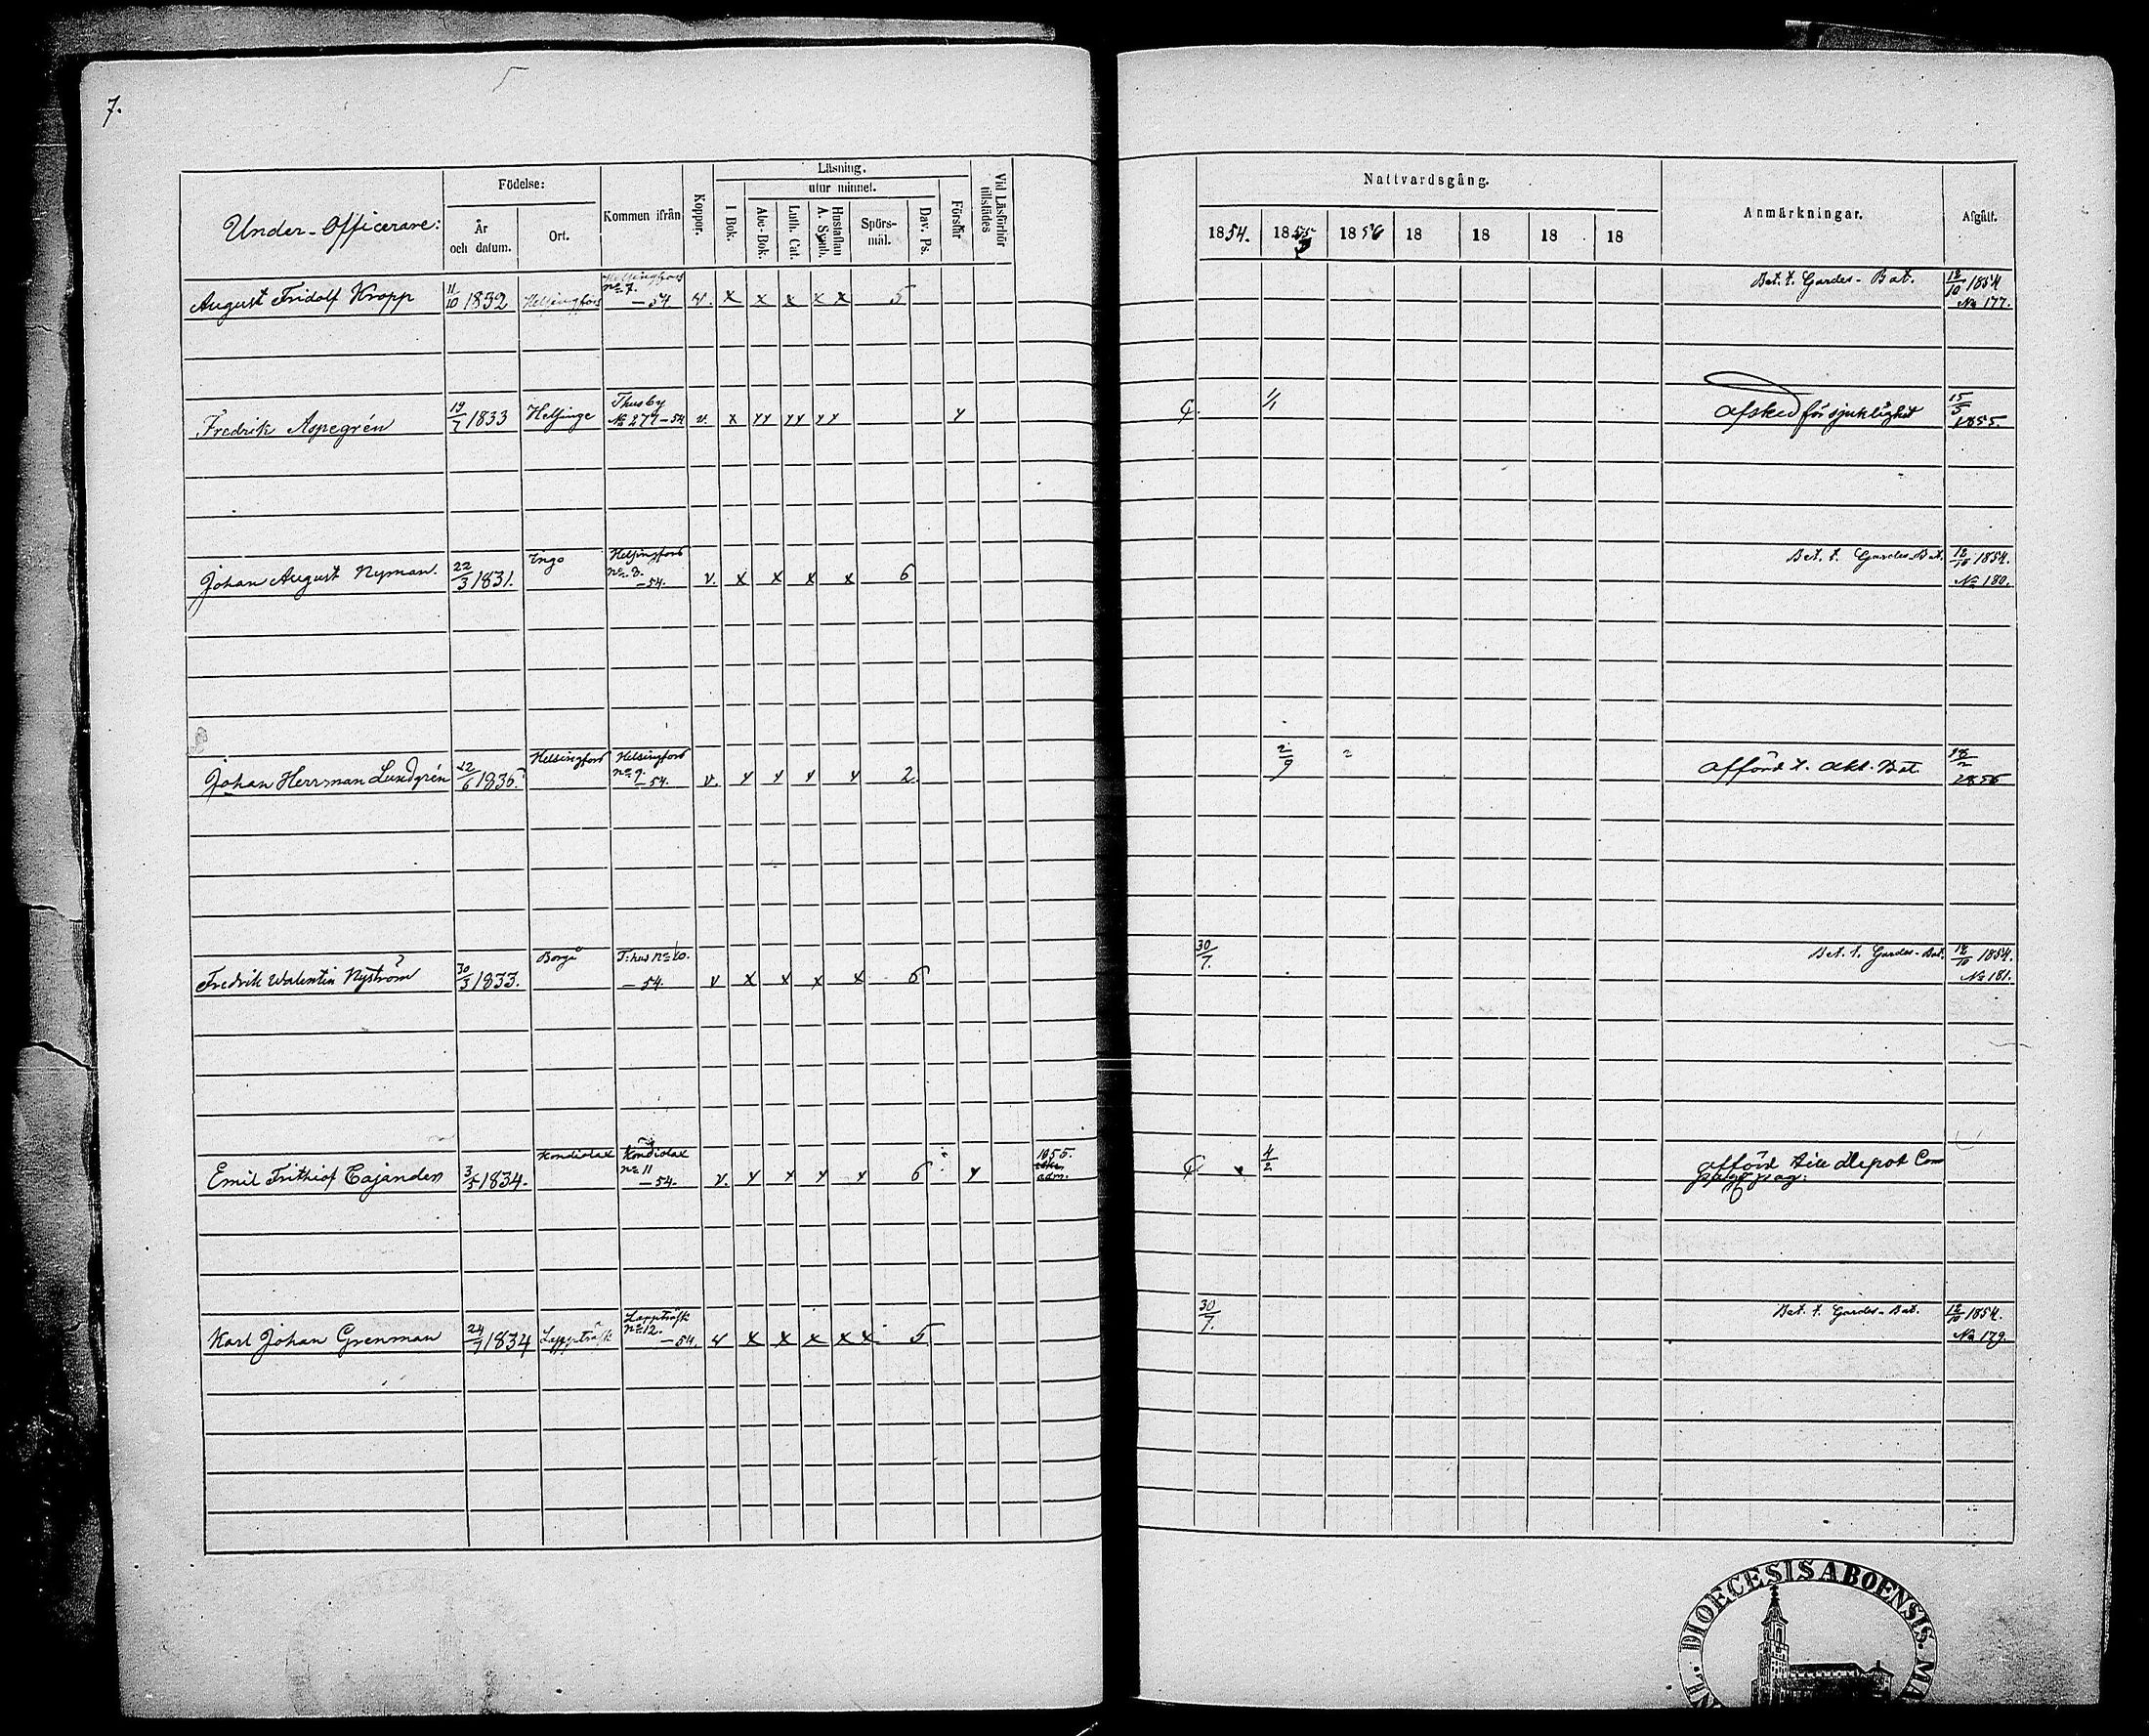 7.
Under-Officerare:
Födelse:
År och datum.
Ort.
Kommen ifrån
Koppor.
Läsning.
I Bok.
utur minnet.
Abc-Bok.
Luth. Cat.
Hustaflan A. Symb.
Spörs-mål.
Dav. Ps.
Förstår
Vid Läsförhör tillstädes
Nattvardsgång.
1854. 1855 1856 18 18 18 18
Anmärkningar.
Afgått.
August Fridolf Kropp 11/10 1832 Helsingfors Helsingfors No 7. -54 v. x x x x x 5 Bat. t. Gardes-Bat. 12/10 1854 No 177.
Fredrik Aspegrén 19/7 1833 Helsinge Thusby No 277-54 v. x yy yy yy y 1/1 afsked för sjuklighet 15/5 1855.
Johan August Nyman. 22/3 1831. Ingo Helsingfors No 8. -54. v. x x x x 6 Bat. t. Gardes-Bat. 12/10 1854. No 180.
Johan Herrman Lundgrén 22/6 1836. Helsingfors Helsingfors No 9. -54. v. y y y y 2 2/9 afförd t. Akt. Bat.
Fredrik Walentin Nyström 30/3 1833. Borgå T:hus No 10. -54. v x x x x 6 30/7. Bat. t. Gardes-Bat. 12/10 1854. No 181.
Emil Frithiof Cajander 3/5 1834. Kondiolax Kondiolax No 11 -54. v. y y y y 6 y 1855. adm. 4/2 afförd till Depot Com
Karl Johan Grenman 24/7 1834 Lappträsk Lappträsk No 12. -54. v x x x x x 5 30/7. Bat. t. Gardes-Bat. 12/10 1854. No 179.
DIOECESIS ABOENSIS.